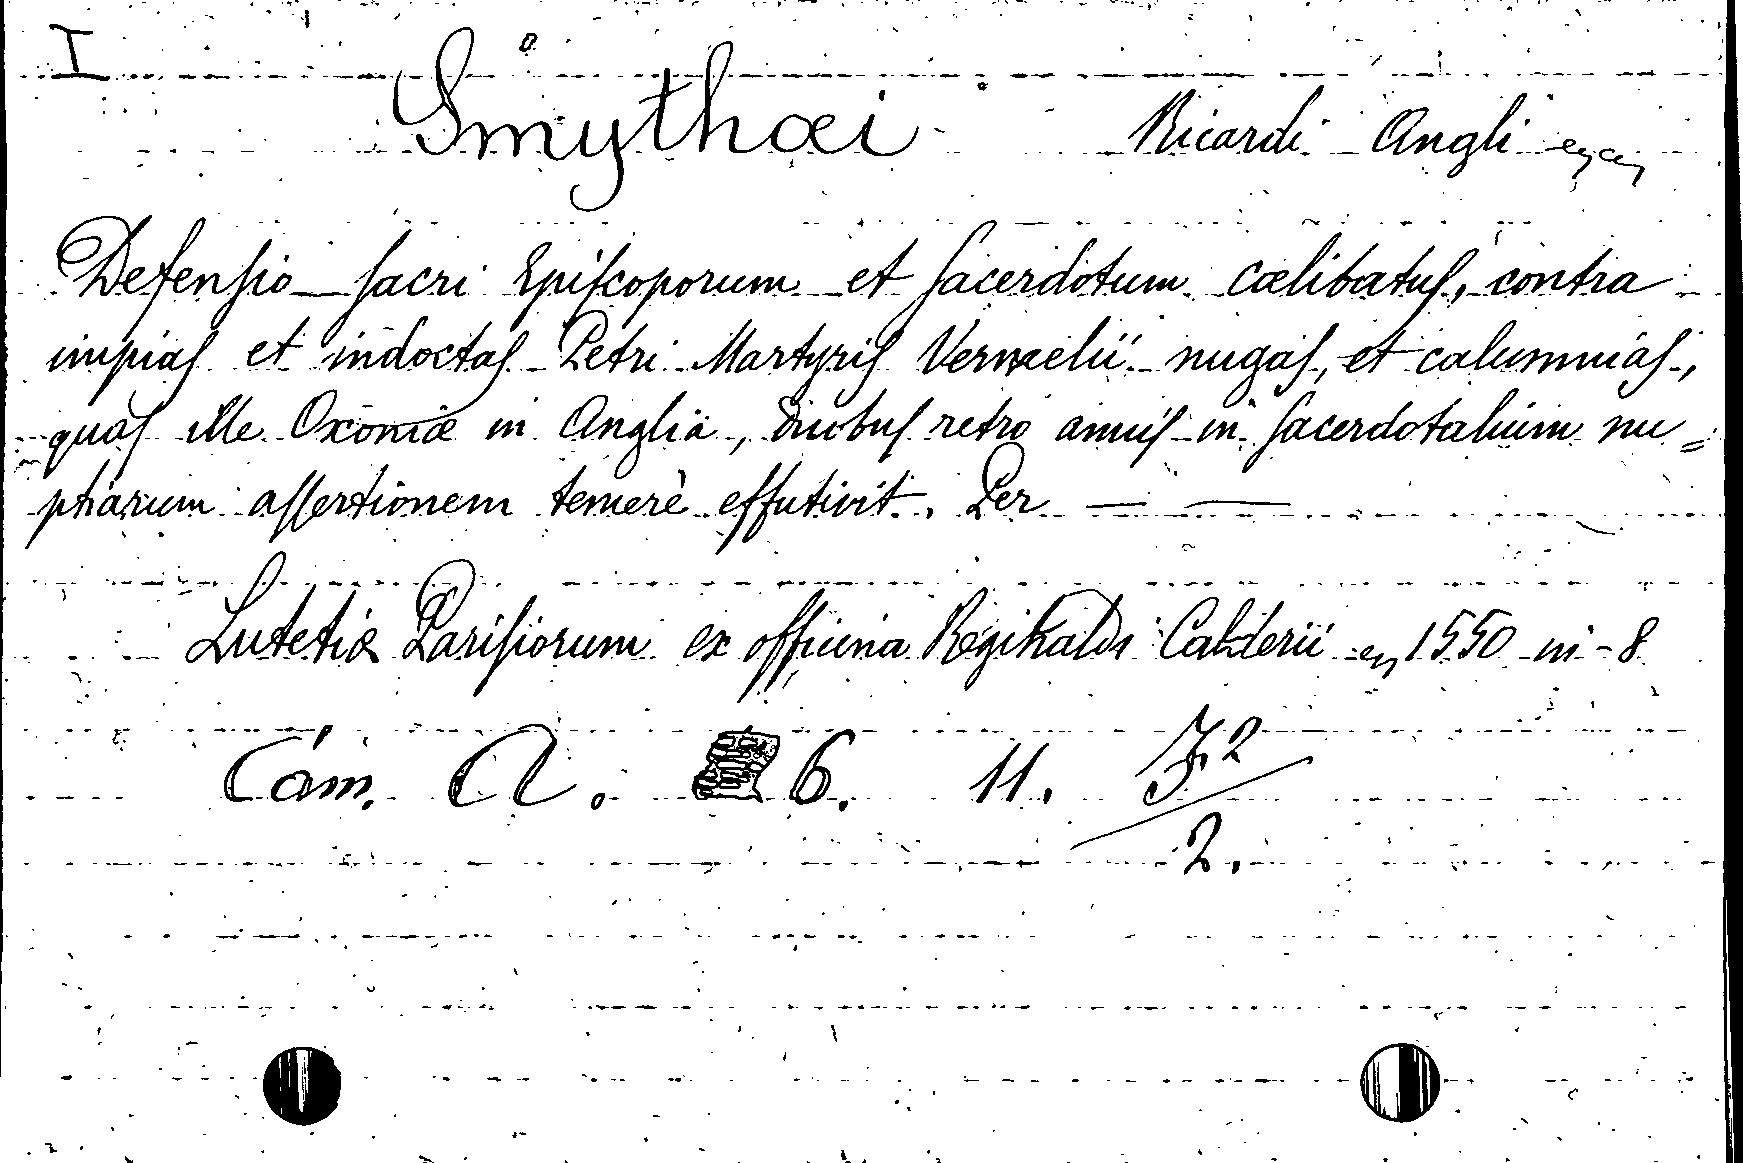 I
Smythæi Ricardi Angli
Defenſio ſacri Epiſcoporum et ſacerdotum cœlibatuſ, contra
impiaſ et indoctaſ Petri Martyriſ Vermelii nugaſ, et calumniaſ,
quaſ ille Oxoniæ in Anglia, duobuſ retro anniſ in ſacerdotalium nu=
ptiarum aſſertionem temerè effutivit. Per — —
Lutetiæ Pariſiorum ex officina Reginaldi Calderii 1550 in-8
Cám. A. 6. 11. F2
2.